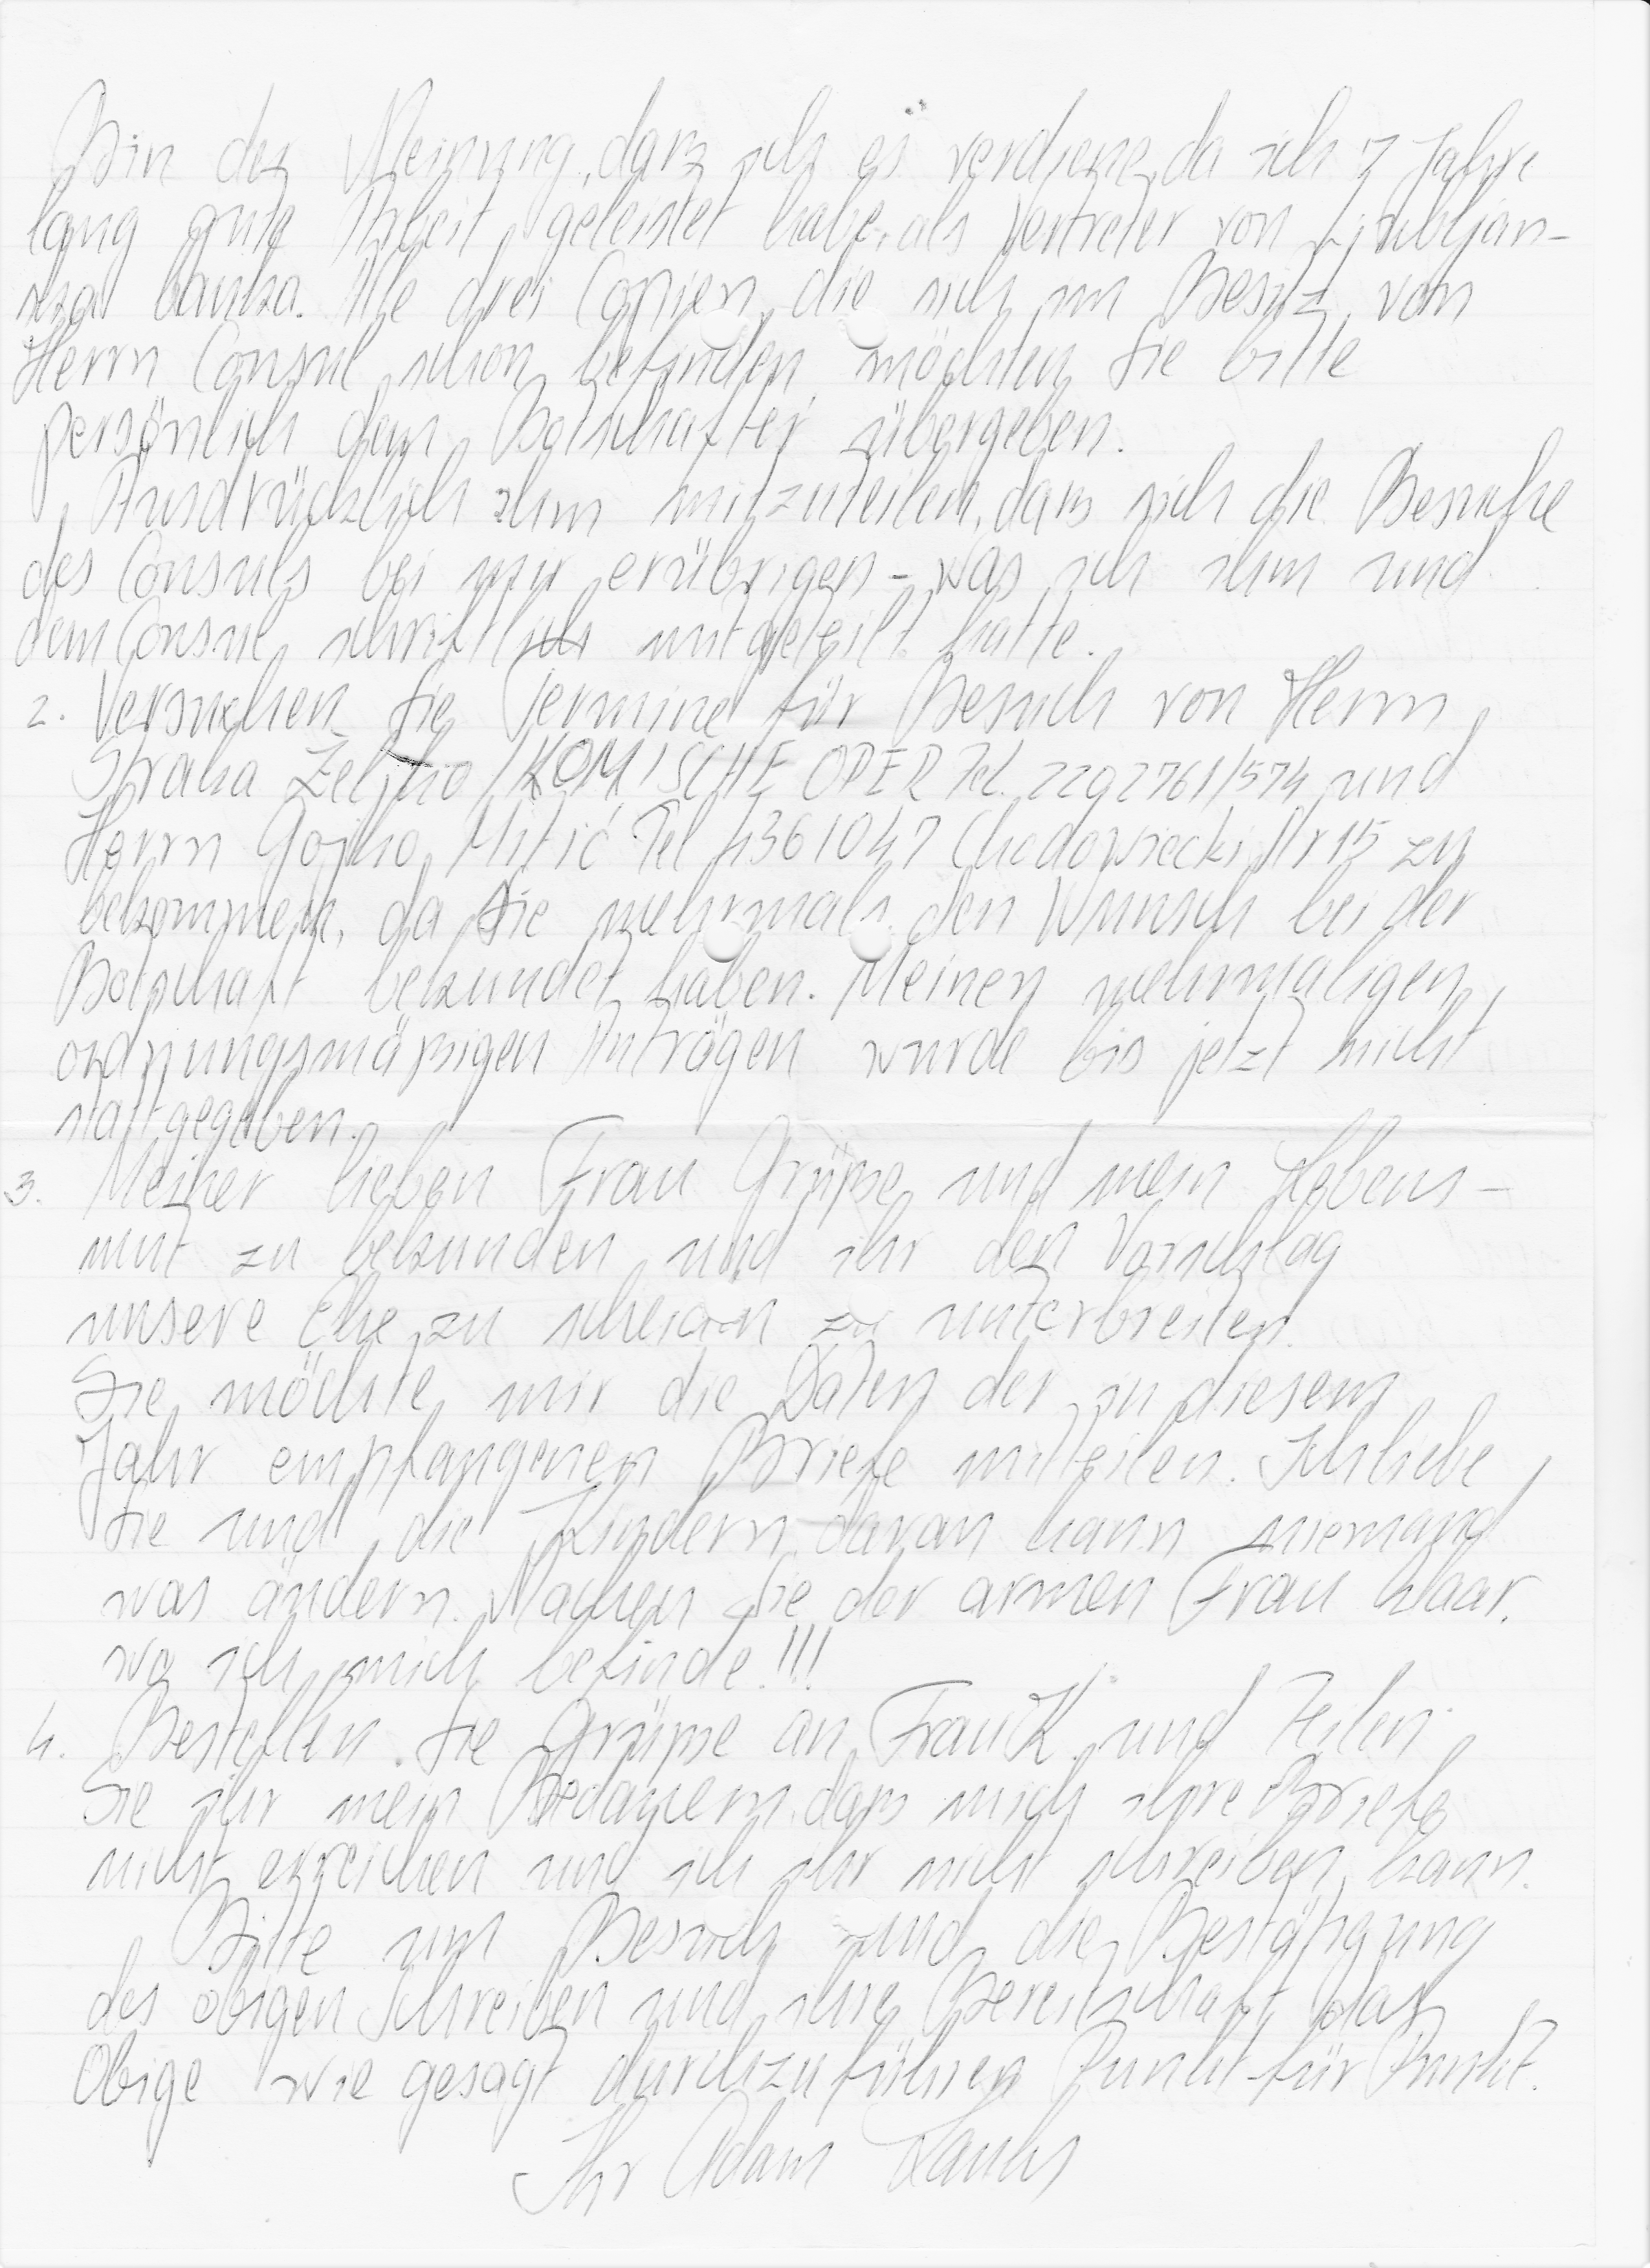 Bin der Meinung, dass ich es verdiene, da ich 7 Jahre
lang gute Arbeit geleistet habe, als Vertreter von Ljubljan-
ska banka. Alle drei Copien, die sich im Besitz von
Herrn Consul schon befinden, möchten Sie bitte
persönlich dem Botschafter übergeben.
Ausdrücklich ihm mitzuteilen, dass sich die Besuche
des Consuls bei mir erübrigen - was ich ihm und
dem Consul schriftlich mitgeteilt hatte.
2. Versuchen Sie Termine für Besuch von Herrn
Straka Željko / KOMISCHE OPER Tel. 2292761/574 und
Herrn Gojko Mitić Tel 4361047 Chodowiecki Str 15 zu
bekommen, da Sie mehrmals den Wunsch bei der
Botschaft bekundet haben. Meinen mehrmaligen,
ordnungsmäßigen Anträgen wurde bis jetzt nicht
stattgegeben.
3. Meiner lieben Frau Grüße und mein Lebens-
mut zu bekunden und ihr den Vorschlag
unsere Ehe zu scheiden zu unterbreiten.
Sie möchte mir die Daten der in diesem
Jahr empfangenen Briefe mitteilen. Ich liebe
Sie und die Kindern, daran kann niemand
was ändern. Machen Sie der armen Frau klaar,
wo ich mich befinde!!!
4. Bestellen Sie Grüße an Frau K. und Teilen
Sie ihr mein Bedauern, dass mich ihre Briefe
nicht erreichen und ich ihr nicht schreiben kann.
Bitte um Besuch und die Bestätigung
des obigen Schreiben und ihre Bereitschaft das
Obige wie gesagt durchzuführen Punkt für Punkt.
Ihr Adam